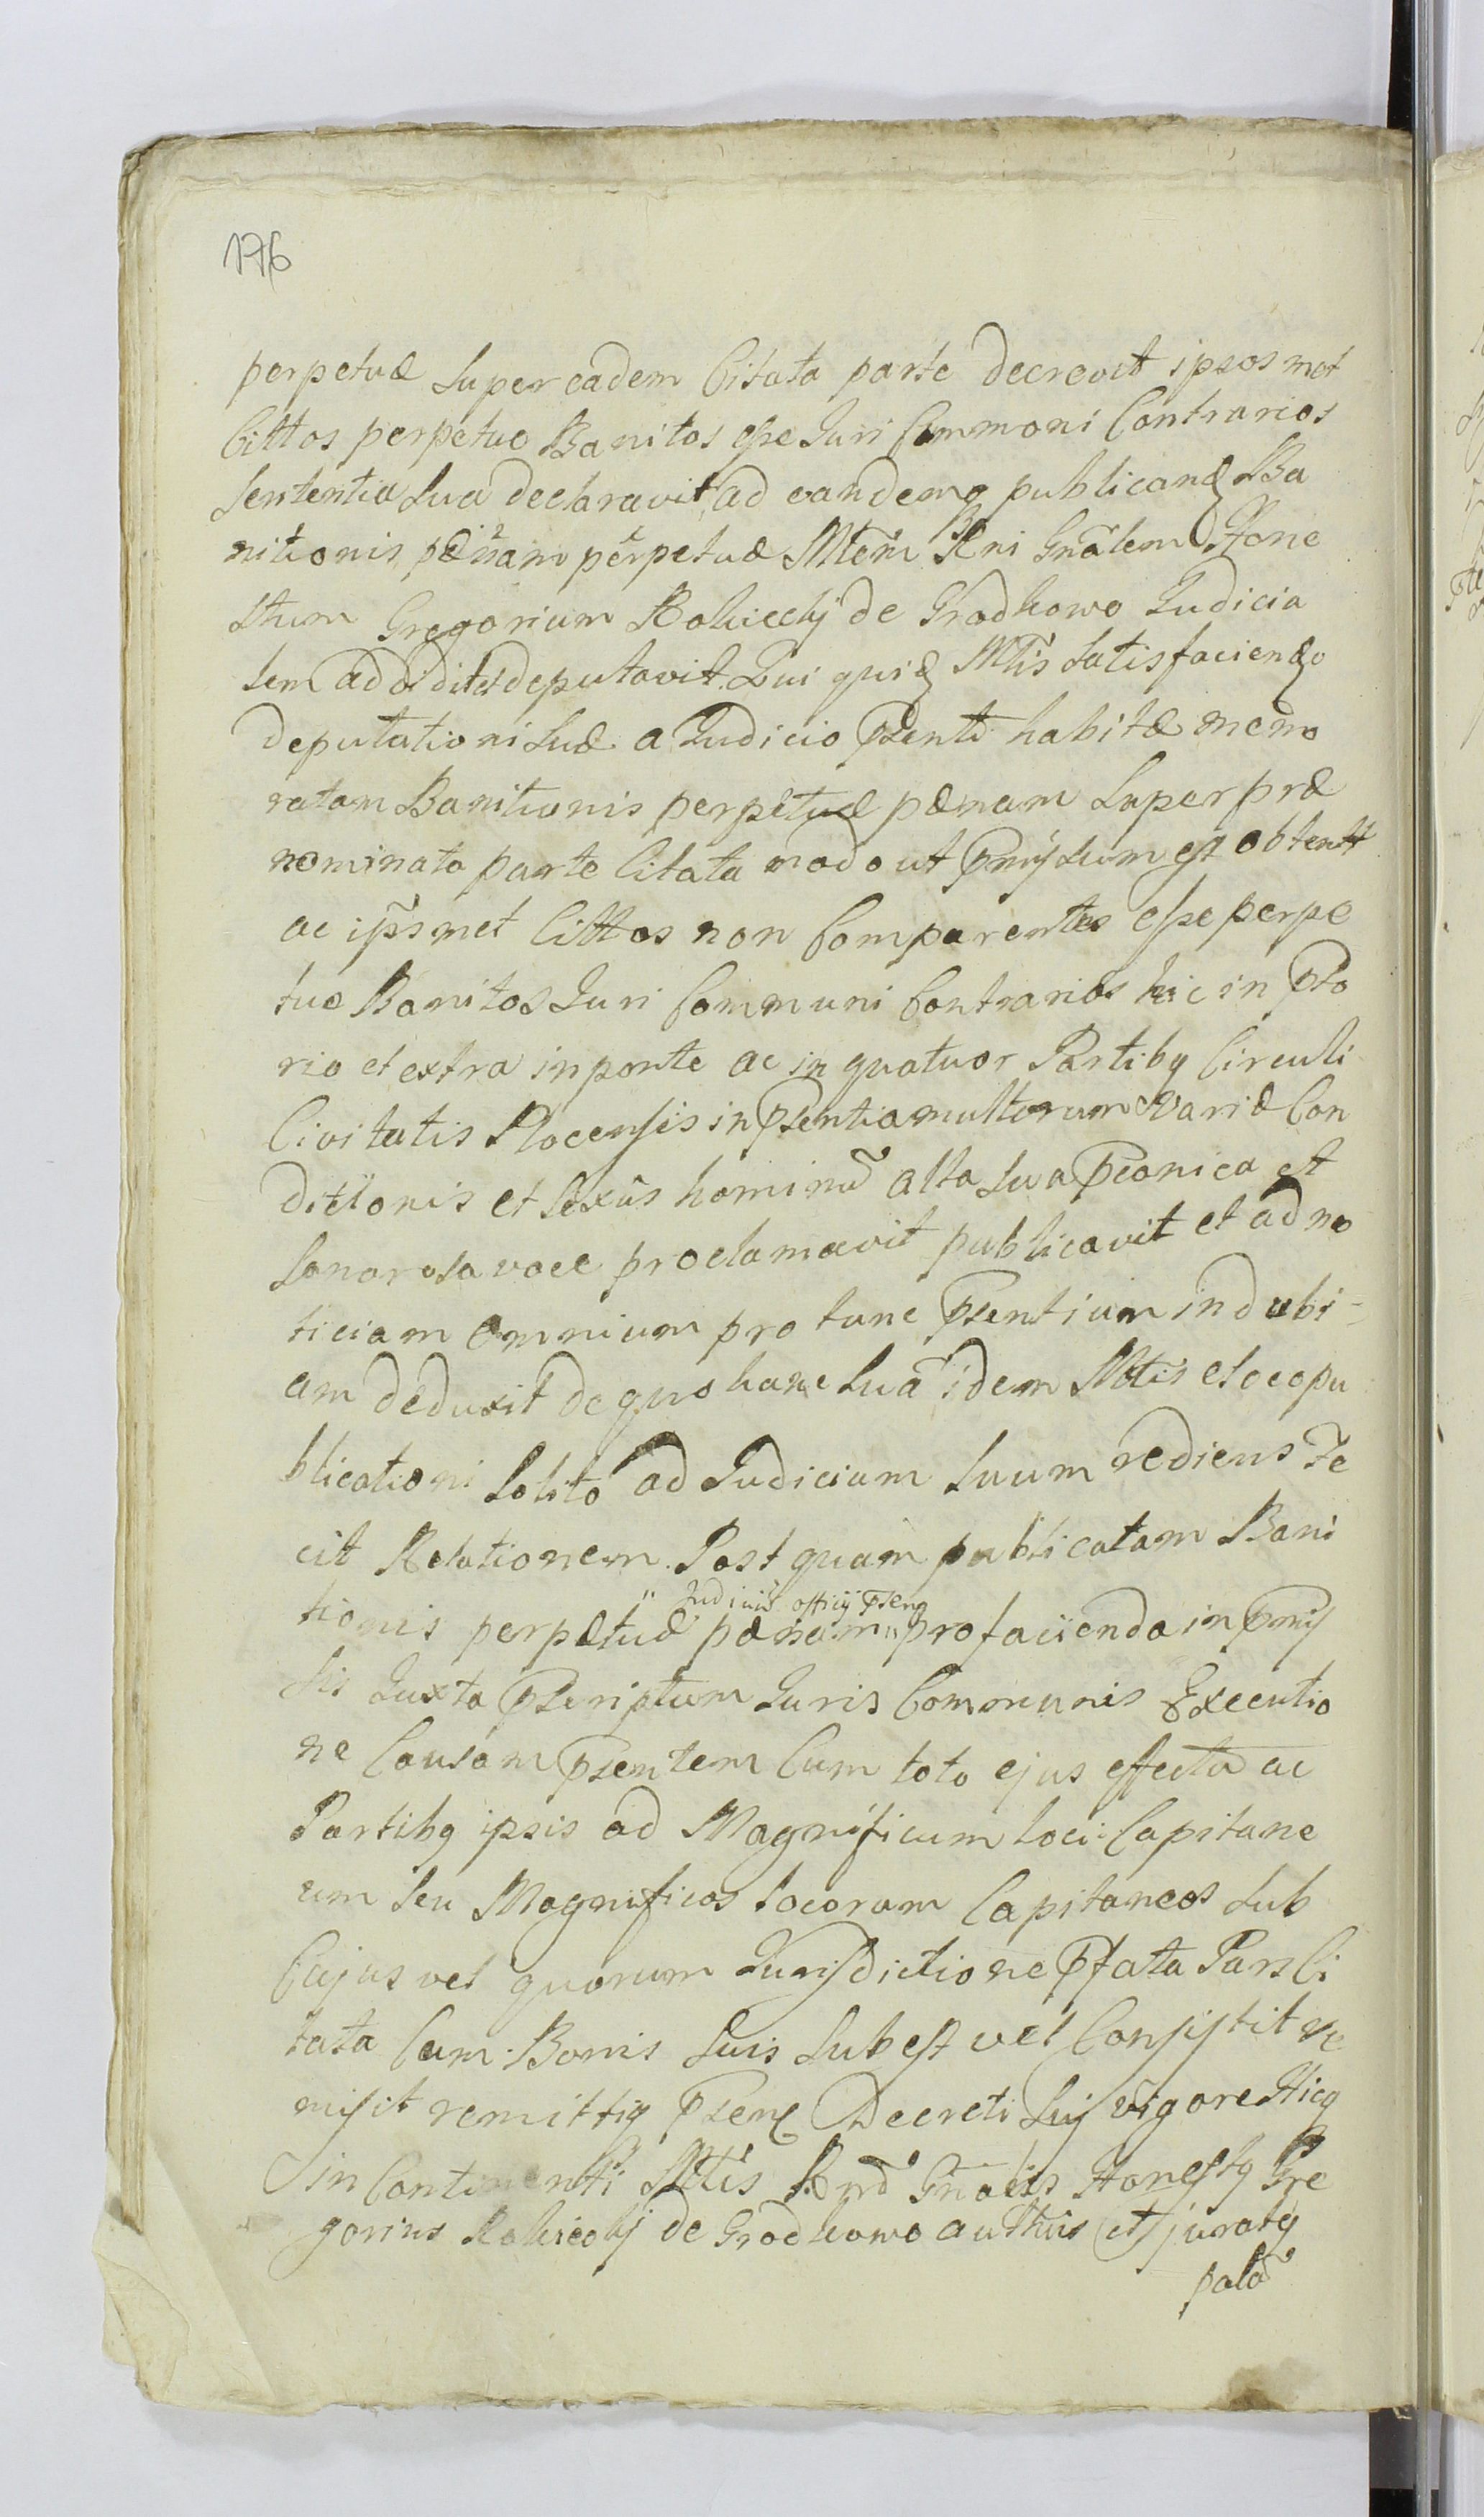 176
perpetuæ super eadem Citata parte decrevit ipsosmet
Cittos perpetuo Banitos esse Juri Commoni Contrarios
sententia sua declaravit, ad eandemq publicand Ba
nitionis pænam perpetuæ Mtem Rni Gnalem Hone
stum Gregorium Rokicckij de Grodkowo Judicia
lem addidit et deputavit. Qui quid Mtis satisfaciendo
deputationi suæ a Judicio Psenti habitæ memo
ratam Banitionis perpetuæ pænam super præ
nominata parte Citata modo ut Pmissum est obtentt
ac ipsmet Cittos non Comparentes esse perpe
tuo Banitos Juri Communi Contrarios hic in Pto
rio et extra in ponte ac in quatuor Partibq Circuli
Civitatis Plocensis in Psentia multorum Variæ Con
ditionis et Sexûs hominũ alta sua Pconica et
sonorosa voce proclamavit publicavit et ad no
ticiam omnium pro tunc Psentium indubi-
am deduxit de quo hanc suã idem Mtis et de eo pu
blicationi solito ad Judicium suum rediens Fe
cit Relationem. Post quam publicatam Bani
" Judiciũ officij Psens
tionis perpætuæ pænam " pro facienda in Pmis
sis Juxta Pscriptum Juris Communis Executio
ne Causam Psentem Cum toto ejus effectu ac
Partibq ipsis ad Magnificum loci Capitane
um seu Magnificos locorum Capitaneos sub
Cujus vel quorum Jurisdictione Pfata Pars Ci
tata Cum Bonis suis subest vel Consistit re
misit remittiq Psens Decreti sui vigore Hicq
in Continenti Mtis Rnd Gnalis Honestq Gre
gorius Rokicckij de Grodkowo authus et juratq
palã